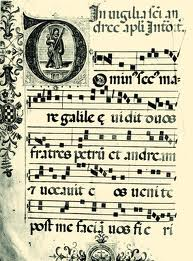 In vigilia sci an
dree apli Introit.
Dominus secus ma
re galilee vidit duos
fratres petrum et andream
et vocavit eos venite
post me faciam vos fieri